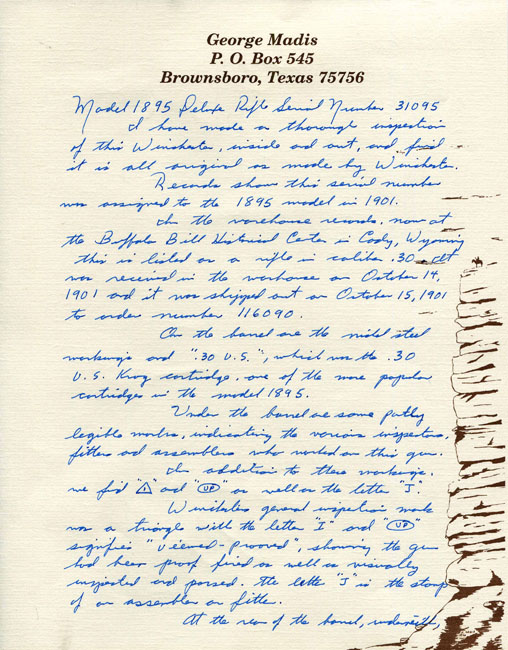 George Madis
P. O. Box 545
Brownsboro, Texas 75756
Model 1895 Deluxe Rifle Serial Number 31095
I have made a thorough inspection
of this Winchester, inside and out, and find
it is all original as made by Winchester.
Records show this serial number
was assigned to the 1895 model in 1901.
In the warehouse records, now at
the Buffalo Bill Historical Center in Cody, Wyoming
this is listed as a rifle in caliber .30. It
was received in the warehouse on October 14,
1901 and it was shipped out on October 15, 1901
to order number 116090.
On the barrel are the nickel steel
markings and ".30 U.S.", which was the .30
U.S. Krag cartridge, one of the more popular
cartridges in the model 1895.
Under the barrel are some partly
legible marks, indicating the various inspectors,
fitters and assemblers who worked on this gun.
In addition to these markings,
we find "I" and "VP" as well as the letter "J".
Winchesters general inspection mark
was a triangle with the letter "I" and "VP"
signifies "viewed-proved", showing the gun
had been proof fired as well as visually
inspected and passed. The letter "J" is the stamp
of an assembler or fitter.
At the rear of the barrel, underneath,